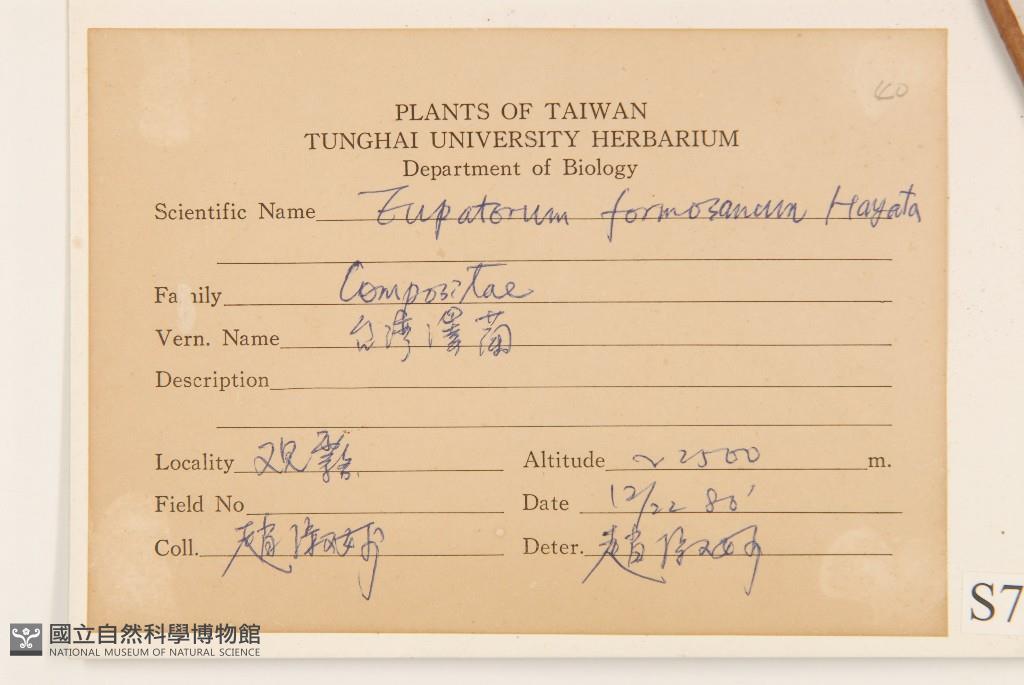 40
PLANTS OF TAIWAN
TUNGHAI UNIVERSITY HERBARIUM
Department of Biology
Scientific Name Eupatorium formosanum Hayata
Family Compositae
Vern. Name 台湾澤蘭
Description
Locality 观霧 Altitude ~2500 m.
Field No Date 12/22 80'
Coll. 趙 Deter. 趙
S7
國立自然科學博物館
NATIONAL MUSEUM OF NATURAL SCIENCE